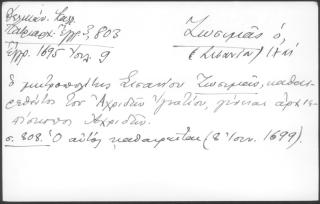 Δελικάν. Καλ.
Πατριαρχ. Ἔγγρ. 3, 803
Ἔγγρ. 1695 Ἰουλ. 9
Ζωσιμᾶς ὁ,
(Σισανίου) ΙΖʹ
ὁ μητροπολίτης Σισανίου Ζωσιμᾶς, καθαι-
ρεθέντος τοῦ Ἀχριδῶν Ἰγνατίου, γίνεται ἀρχιε-
πίσκοπος Ἀχριδῶν.
σ. 808. Ὁ αὐτὸς καθαιρεῖται (8 Ἰουν. 1699).